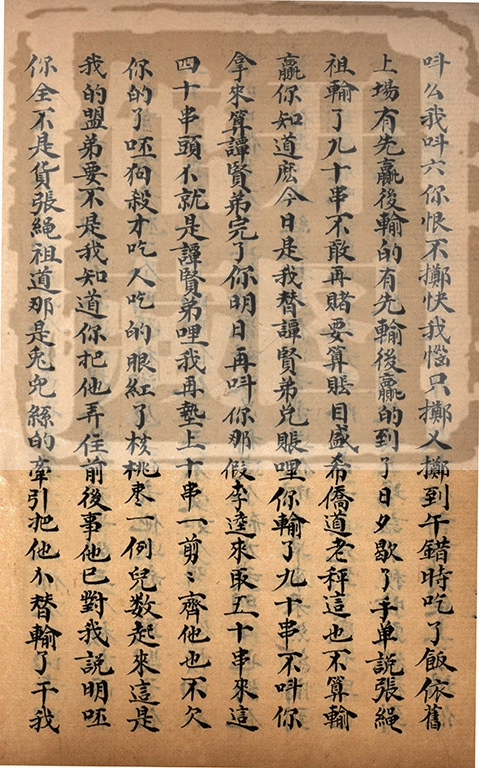 呌么我呌六你恨不擲快我惱只擲乂擲到午錯時吃了飯依舊
上場有先贏後輸的有先輸後贏的到了日夕歇了手单說張繩
祖輸了九十串不敢再賭要算賬目盛希僑道老秤這也不算輸
贏你知道麽今日是我替譚賢弟兑賬哩你輸了九十串不呌你
拿來算譚賢弟完了你明日再呌你那假李逵來取五十串來這
四十串頭不就是譚賢弟哩我再墊上十串一剪〻齊他也不欠
你的了呸狗殺才吃人吃的眼紅了核桃枣一例兒数起來這是
我的盟弟要不是我知道你把他弄住前後事他已對我說明呸
你全不是貨張繩祖道那是兎兒絲的牽引把他小替輸了干我